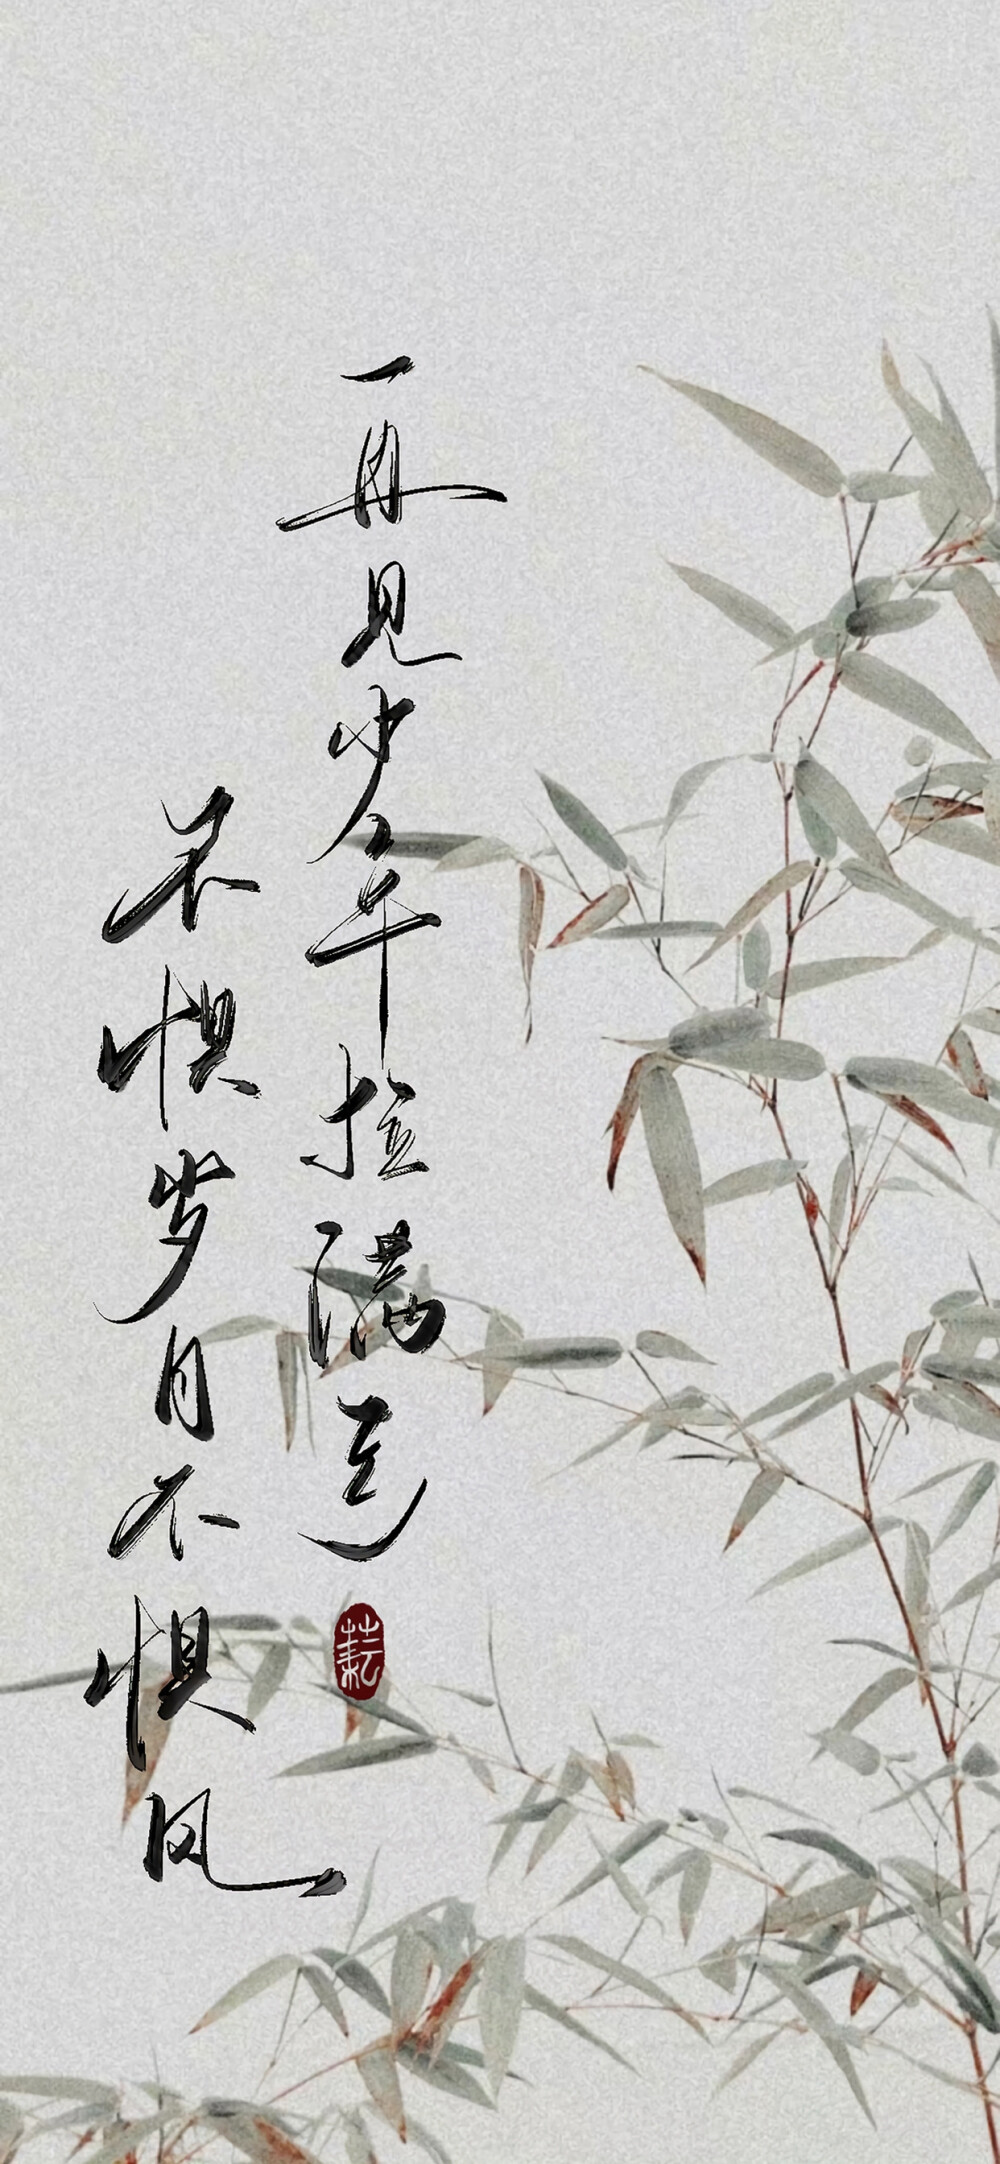 一再见少年拉满弓
不惧岁月不惧风
耘